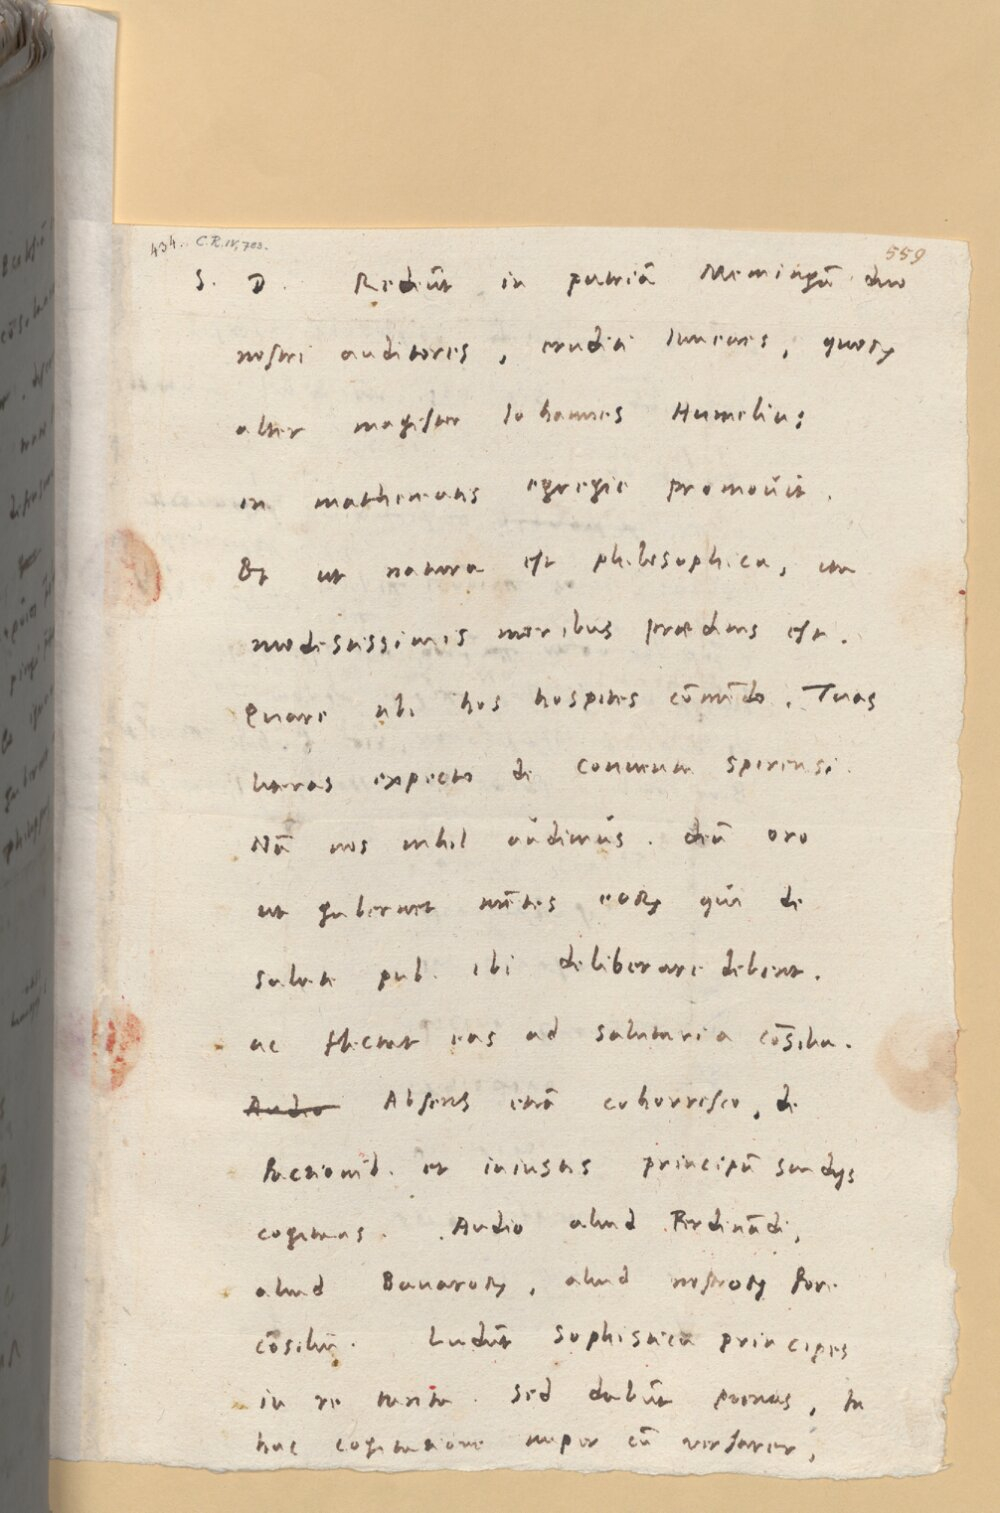 434. C.R. IV, 783.
559
S. D. Redeūt in patriā Memingā duo
nostri auditores, eruditi Iuuenes, quorꝝ
alter magister Iohannes Humelius
in mathematis egregie promouit.
Et ut natura est philosophica, ita
modestissimis moribus præditus est.
Quare tibi hos hospites cōmēdo. Tuas
literas expecto de conuentu spirensi.
Nā nos nihil audimus. deū oro
ut gubernet mētes eorꝝ qui de
salute pub. ibi deliberare debent.
ac flectat eas ad salutaria cōsilia.
Audio Absens etiā cohorresco, de
factionib. et iniustis principū studijs
cogitans. Audio aliud Ferdinādi,
aliud Bauarorꝝ, aliud nostrorꝝ fore
cōsiliū. Ludūt sophistica principes
in re tanta. Sed dabūt poenas, In
hac cogitatione nuper cū versarer,